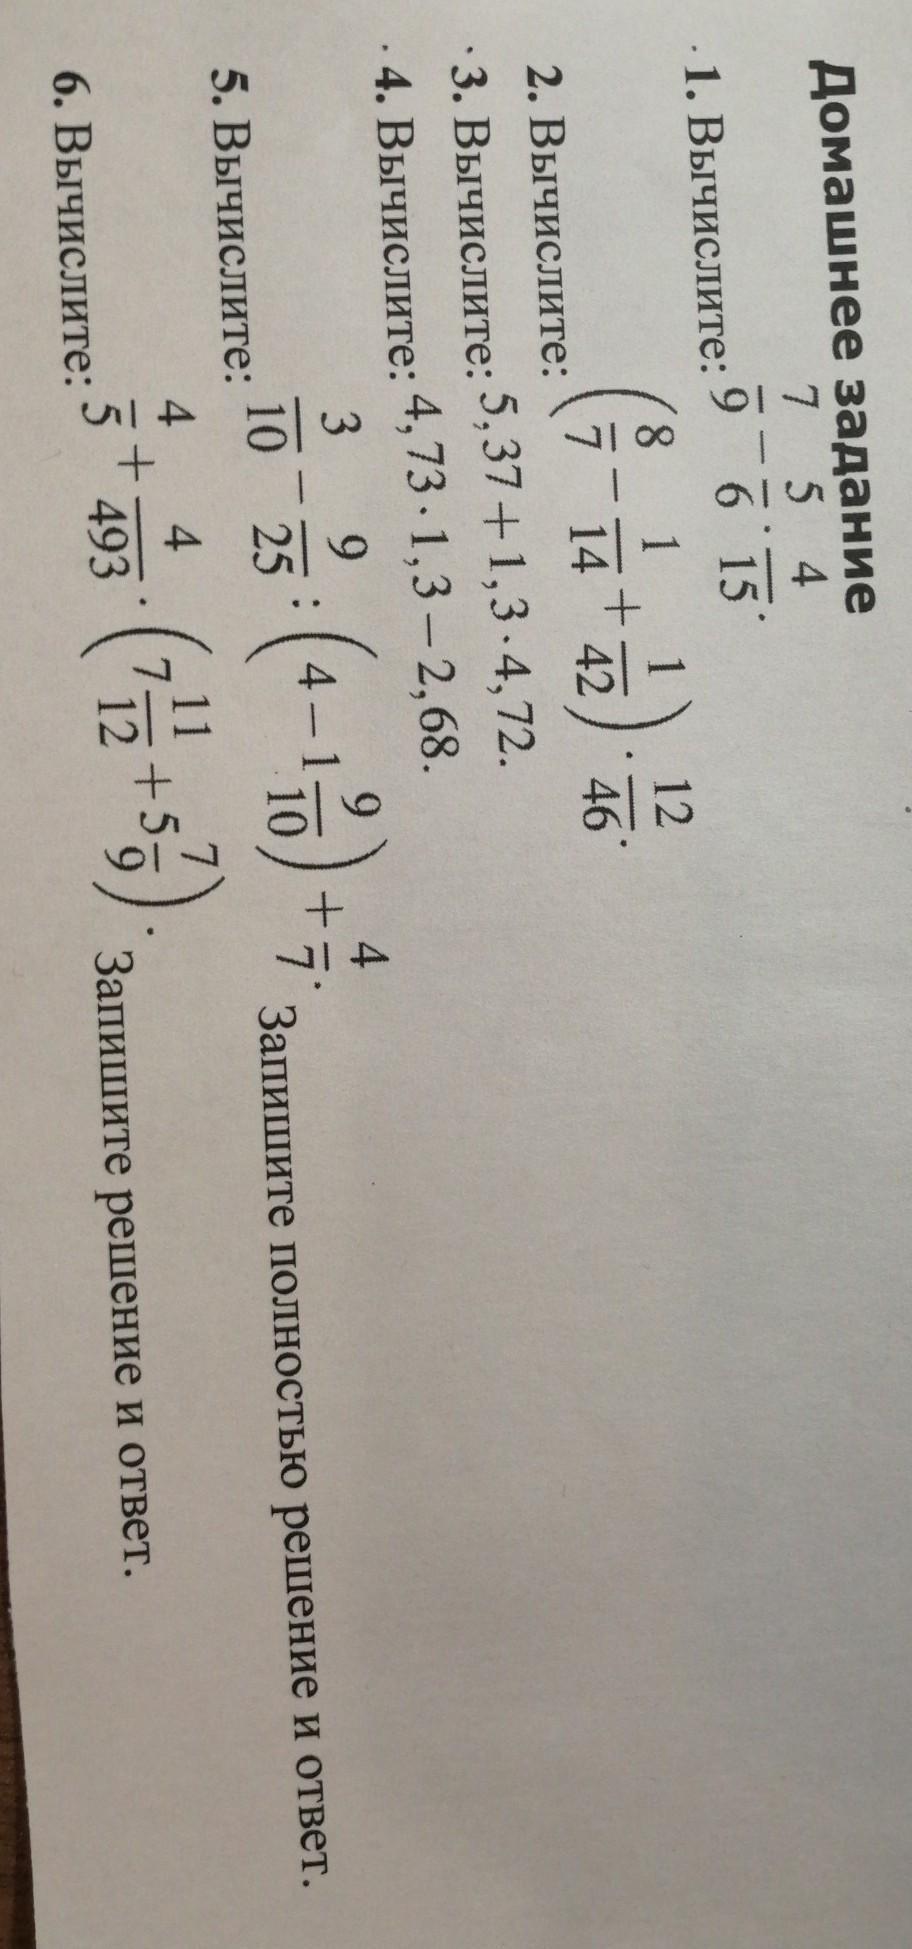 Домашнее задание
1. Вычислите: 7/9 − 5/6 · 4/15.
2. Вычислите: (8/7 − 1/14 + 1/42) · 12/46.
3. Вычислите: 5,37 + 1,3 · 4,72.
4. Вычислите: 4,73 · 1,3 − 2,68.
5. Вычислите: 3/10 − 9/25 : (4 − 1 9/10) + 4/7. Запишите полностью решение и ответ.
6. Вычислите: 4/5 + 4/493 · (7 11/12 + 5 7/9). Запишите решение и ответ.